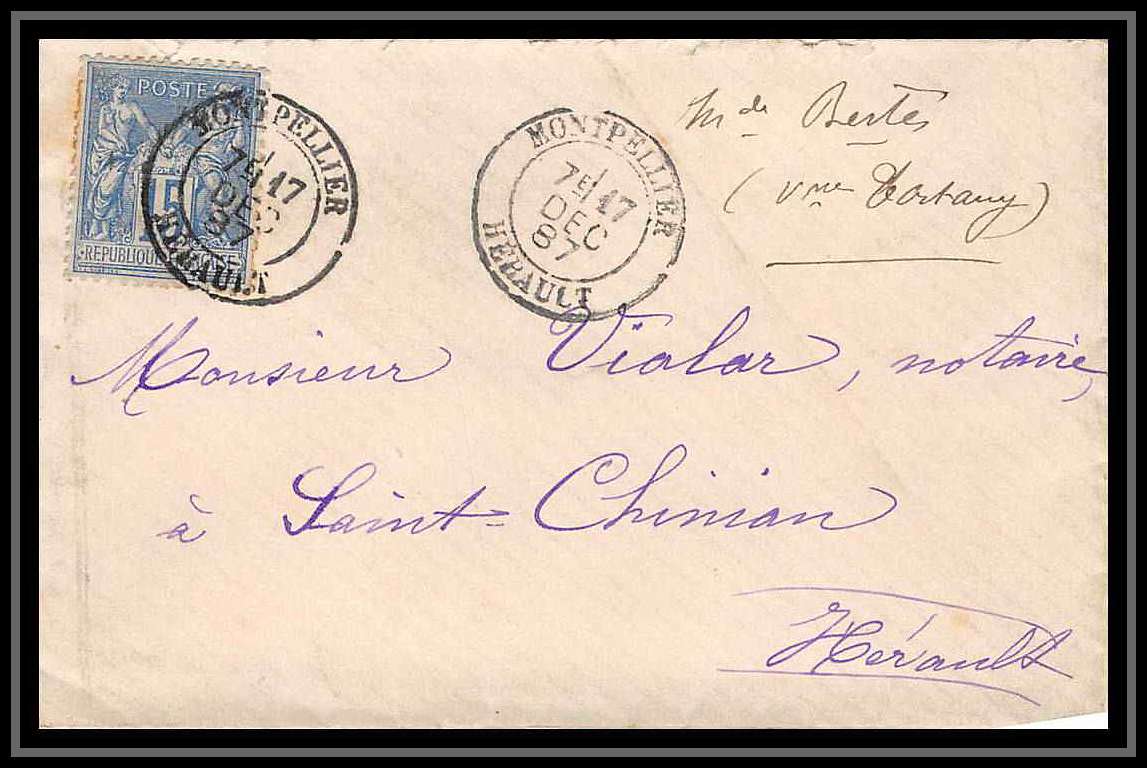 POSTE
15
REPUBLIQUE
MONTPELLIER
7E 17
DEC
87
HERAULT
MONTPELLIER
7E 17
DEC
87
HERAULT
Mde Bertès
(Vme Tortauy)
Monsieur Vialar, notaire,
à Saint-Chinian
Hérault